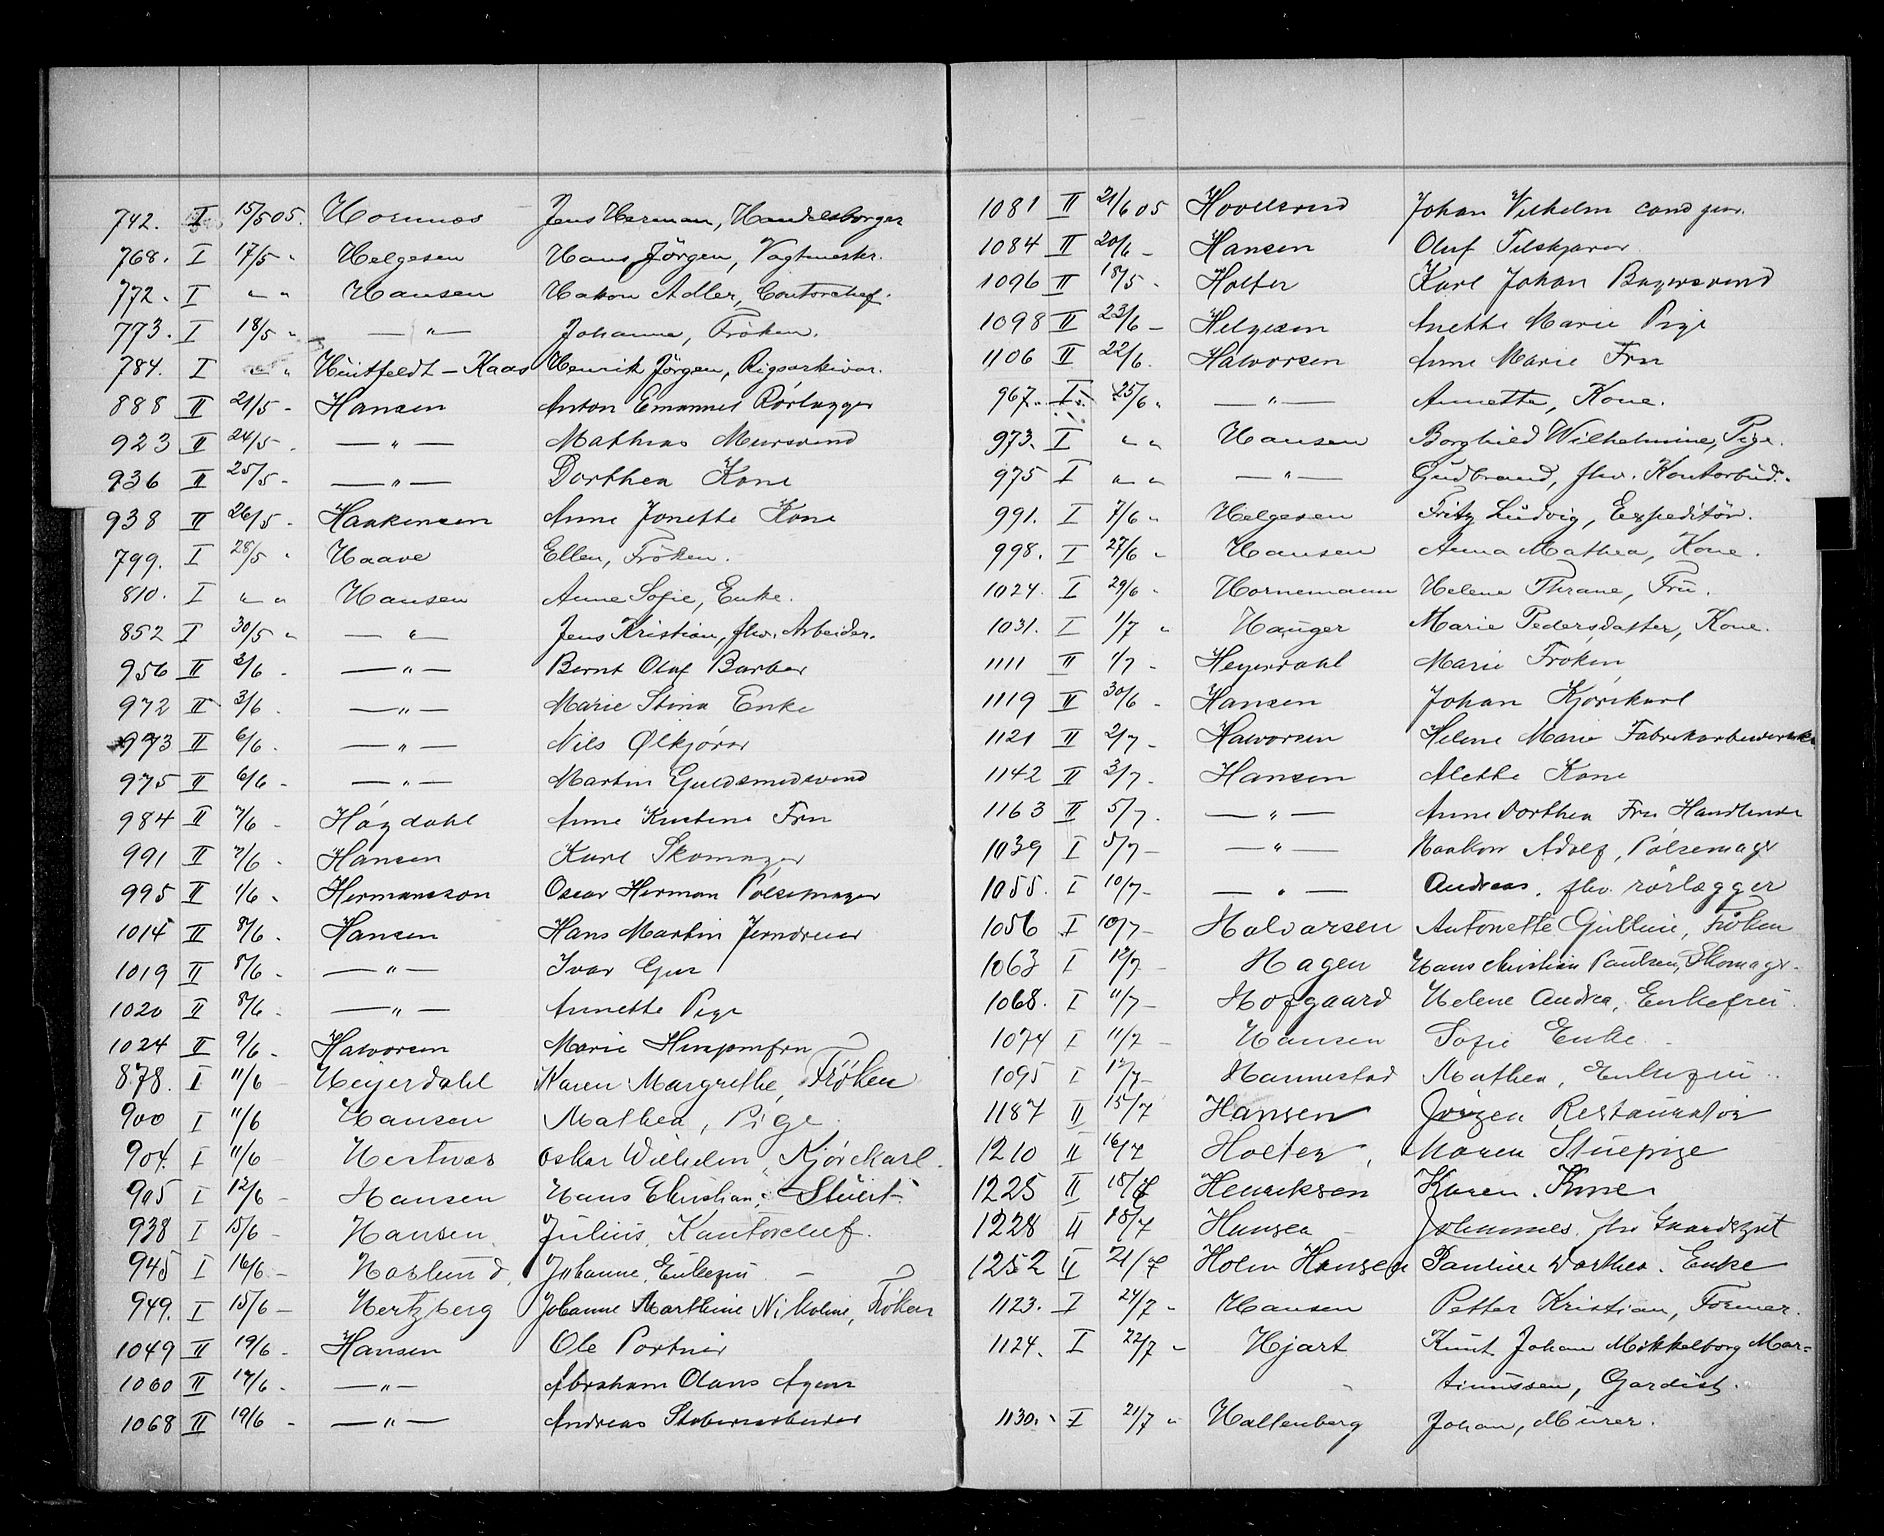 742. I 15/5 05. Hosmos Jens Herman, Handelsborger
768. I 17/5 " Helgesen Hans Jörgen, Vagtmester.
772. I " " Hansen Hakon Adler, Contorchef.
773. I 18/5 " — " — Johanne, Frøken.
784. I — " Huitfeldt - Kaas Henrik Jörgen, Rigsarkivar.
888 II 21/5 - Hansen Anton Emanuel Rörlægger
923 II 24/5 . — " — Mathias Mursvend
936 II 25/5 - — " — Dorthea Kone
938 II 26/5 - Haakensen Anne Jonette Kone
799. I 28/5 " Haave Ellen, Frøken.
810. I " " Hansen Anne Sofie, Enke.
852 I 30/5 " — " — Jens Kristian, fhv. Arbeider.
956 II 3/6 - — " — Bernt Olaf Barber
972 II 3/6 - — " — Marie Stina Enke
973 II 6/6 . — " — Nils Ølkjører
975 II 6/6 - — " — Martin Guldsmedsvend
984 II 7/6 - Högdahl Anne Kristine Fru
991 II 7/6 . Hansen Karl Skomager
995 II 1/6 - Hermansson Oscar Herman Pölsemager
1014 II 8/6 . Hansen Hans Martin Jerndreier
1019 II 8/6 - — " — Ivar Gut
1020 II 8/6 . — " — Annette Pige
1024 II 9/6 - Halvorsen Marie Husjomfru
878. I 11/6 - Heijerdahl Karen Margrethe, Frøken
900 I 11/6 Hansen Mathea, Pige.
904. I 11/6 - Hestnæs Oskar Wilhelm, Kjørekarl.
905 I 12/6 - Hansen Hans Christian, Stuert
938 I 15/6 - Hansen. Julius, Kontorchef.
945 I 16/6 - Haslund, Johanne, Enkefru —
949. I 15/6 - Hertzberg Johanne Marthine Nikoline, Frøken
1049 II 19/6 - Hansen Ole Portner
1060 II 17/6 - — " — Abraham Olaus Agent
1068 II 19/6 - — " — Andreas Støberiarbeider
1081 II 21/6 05 Hovelsrud Johan Vilhelm cand jur.
1084 II 20/6 - Hansen Oluf Filskjærer
1096 II 18/5 . Holter Karl Johan Bagersvend
1098 II 23/6 - Helgesen Anette Marie Pige
1106 II 22/6. Halvorsen Anne Marie Fru
967. I. 25/6 " — " — Annette, Kone.
973. I " " Hansen Borghild Wilhelmine, Pige.
975 I " " — " — Gudbrand, fhv. Kontorbud.
991. I 7/6 " Helgesen Fritz Ludvig, Expeditör.
998. I 27/6 " Hansen Anna Mathea, Kone.
1024. I 29/6 " Hornemann Helene Thrane, Fru.
1031. I 1/7 " Hauger Marie Pedersdatter, Kone.
1111 II 1/7 - Heyerdahl Marie Frøken
1119 II 30/6 - Hansen Johan Kjørekarl
1121 II 2/7 - Halvorsen Helene Marie Fabrikarbeiderske
1142 II 3/7. Hansen Alette Kone
1163 II 5/7. — " — Anne Dorthea Fru Handlende
1039 I 5/7 - — " — Haakon Adolf, Pølsemagr
1055. I 10/7 - — " — Andreas. fhv. rørlægger
1056 I 10/7 - Halvarsen Antonette Gulline, Frøken
1063 I 12/7 - Hagen Hans Christian Paulsen, Skomagr.
1068. I 11/7 - Hofgaard Helene Andrea, Enkefru
1074 I 11/7 - Hansen Sofie Enke.
1095 I 12/7 - Hannestad Mathea, Enkefru.
1187 II 15/7 Hansen Jörgen Restauratør
1210 II 16/7 Holter, Maren Stuepige
1225 II 18/7 Henriksen Karen. Kone
1228 II 18/7 Hansen - Johannes. fhv Gaardsgut
1252 II 21/7 Holm Hansen Pauline Dorthea. Enke
1123. I 24/7 - Hansen Petter Kristian, Former.
1124. I 22/7 - Hjort Knut Johan Mikkelborg Mar=
tinussen, Gardist.
1130. I 21/7 " Haltenberg Johan, Murer.